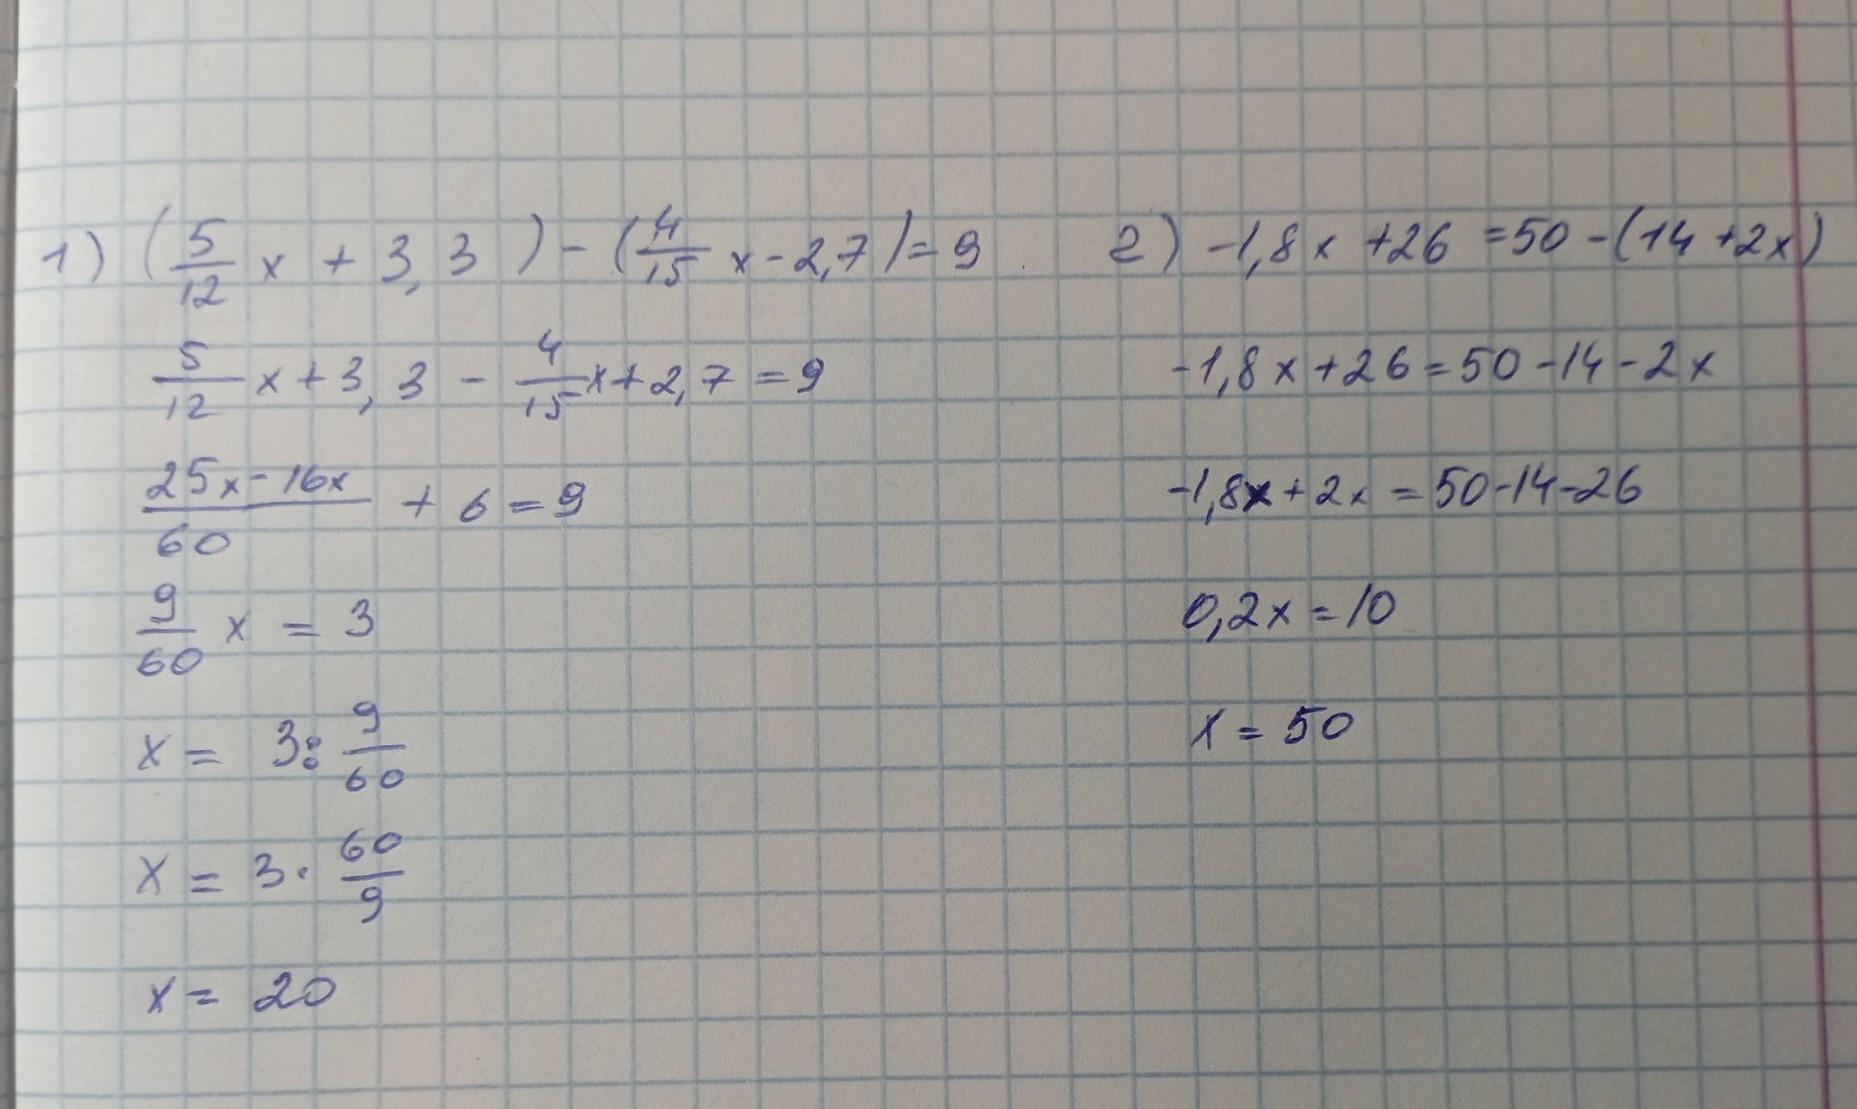 1) (5/12 x + 3,3) - (4/15 x - 2,7) = 9
5/12 x + 3,3 - 4/15 x + 2,7 = 9
25x - 16x / 60 + 6 = 9
9/60 x = 3
x = 3 : 9/60
x = 3 · 60/9
x = 20
2) -1,8x + 26 = 50 - (14 + 2x)
-1,8x + 26 = 50 - 14 - 2x
-1,8x + 2x = 50 - 14 - 26
0,2x = 10
x = 50